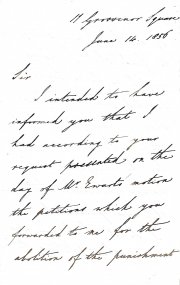 11 Grosvenor Square
June 14. 1856
Sir
I intended to have
informed you that I
had according to your
request presented on the
day of Mr. Ewarts motion
the petitions which you
forwarded to me for the
abolition of the punishment